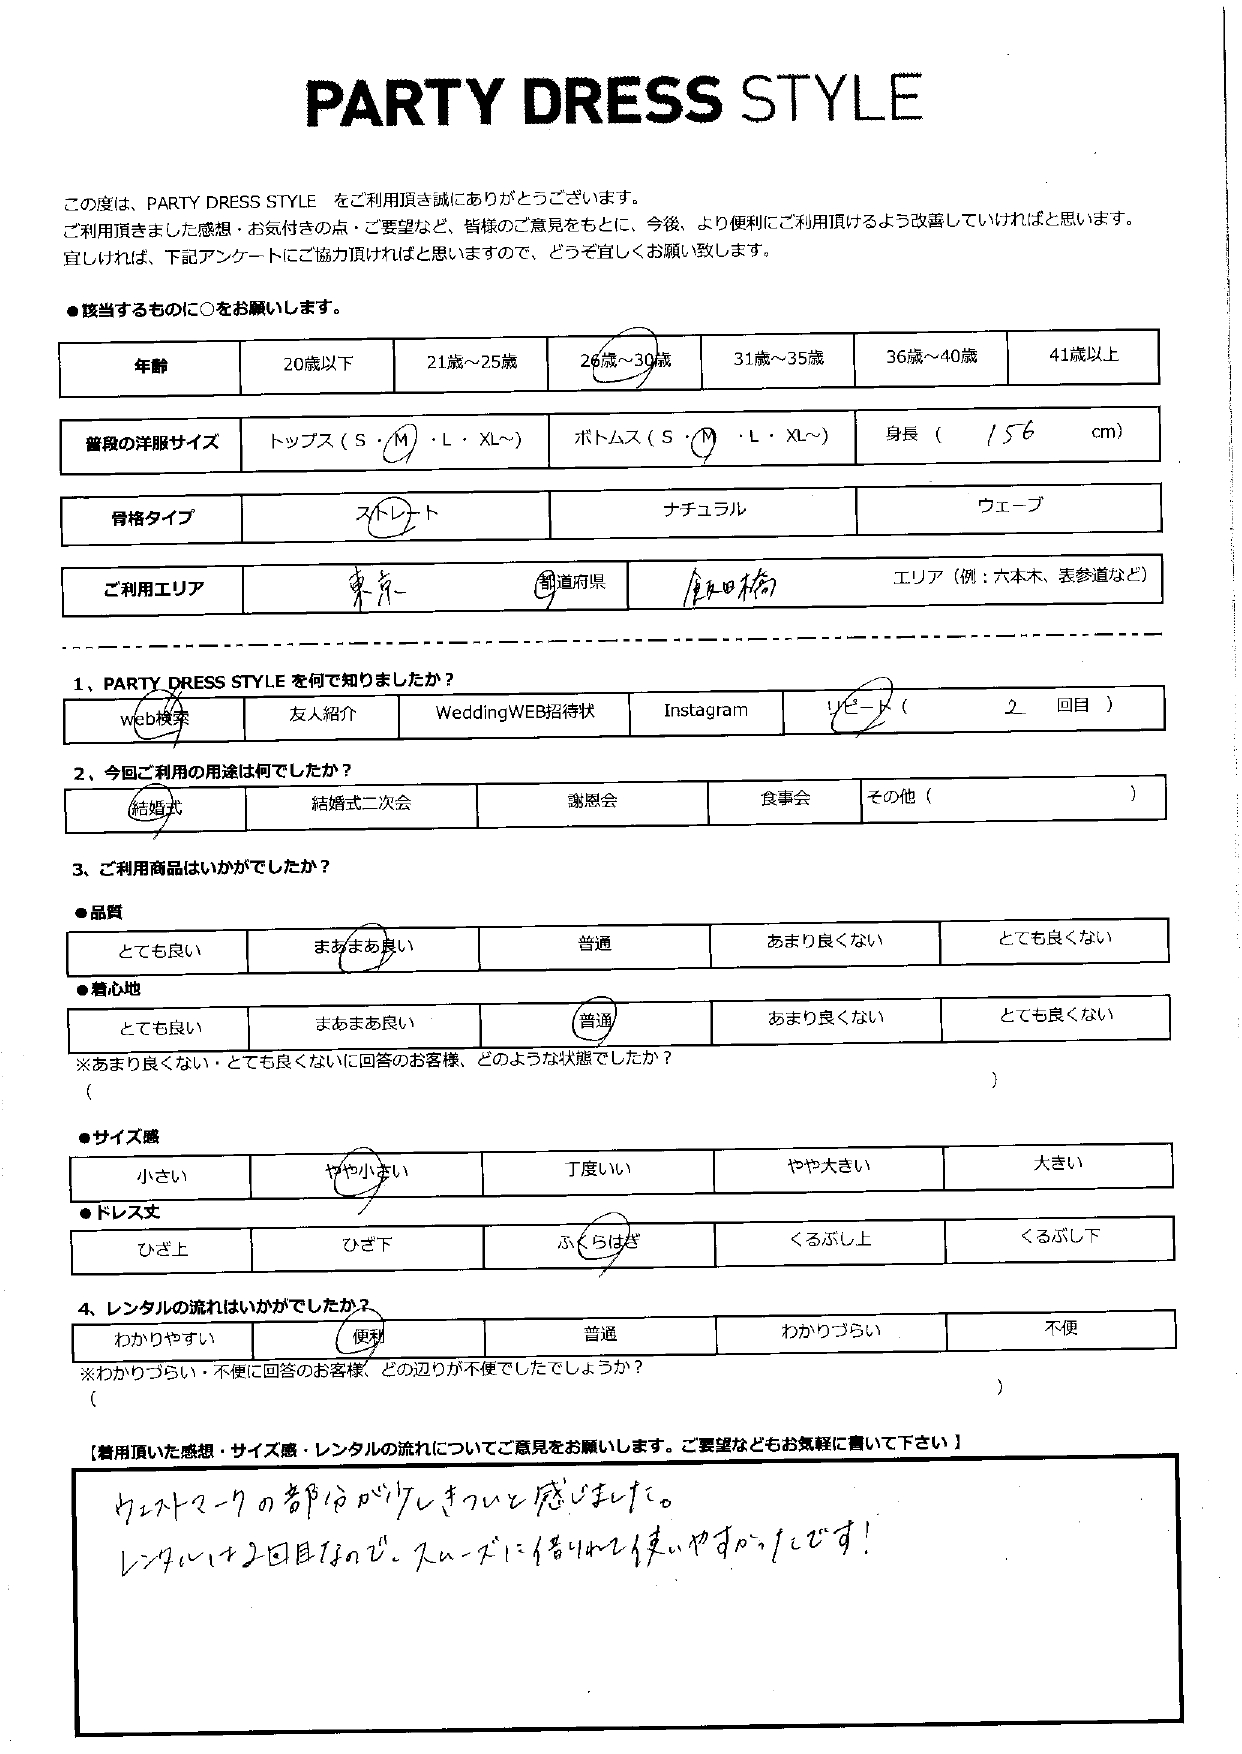 PARTY DRESS STYLE
この度は、PARTY DRESS STYLE　をご利用頂き誠にありがとうございます。
ご利用頂きました感想・お気付きの点・ご要望など、皆様のご意見をもとに、今後、より便利にご利用頂けるよう改善していければと思います。
宜しければ、下記アンケートにご協力頂ければと思いますので、どうぞ宜しくお願い致します。
●該当するものに○をお願いします。
年齢 20歳以下 21歳～25歳 26歳～30歳 31歳～35歳 36歳～40歳 41歳以上
普段の洋服サイズ トップス（ S ・ M ・ L ・ XL～） ボトムス（ S ・ M ・ L ・ XL～） 身長 （ 156 cm）
骨格タイプ ストレート ナチュラル ウェーブ
ご利用エリア 東京 都道府県 飯田橋 エリア（例：六本木、表参道など）
1、PARTY DRESS STYLE を何で知りましたか？
web検索 友人紹介 WeddingWEB招待状 Instagram リピート（ 2 回目 ）
2、今回ご利用の用途は何でしたか？
結婚式 結婚式二次会 謝恩会 食事会 その他（ ）
3、ご利用商品はいかがでしたか？
●品質
とても良い まあまあ良い 普通 あまり良くない とても良くない
●着心地
とても良い まあまあ良い 普通 あまり良くない とても良くない
※あまり良くない・とても良くないに回答のお客様、どのような状態でしたか？
（ ）
●サイズ感
小さい やや小さい 丁度いい やや大きい 大きい
●ドレス丈
ひざ上 ひざ下 ふくらはぎ くるぶし上 くるぶし下
4、レンタルの流れはいかがでしたか？
わかりやすい 便利 普通 わかりづらい 不便
※わかりづらい・不便に回答のお客様、どの辺りが不便でしたでしょうか？
（ ）
【着用頂いた感想・サイズ感・レンタルの流れについてご意見をお願いします。ご要望などもお気軽に書いて下さい 】
ウエストマークの部分が少しきついと感じました。
レンタルは2回目なので、スムーズに借りれて使いやすかったです！